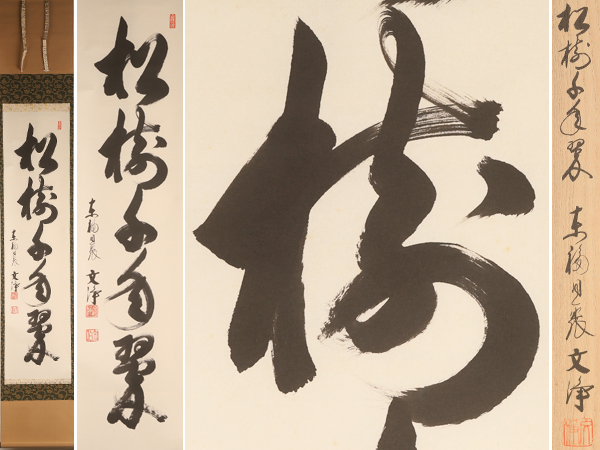 松樹千年翠
東福目農 文浄
松樹千年翠
東福目農 文浄
樹
松樹千年翠 東福目農 文浄